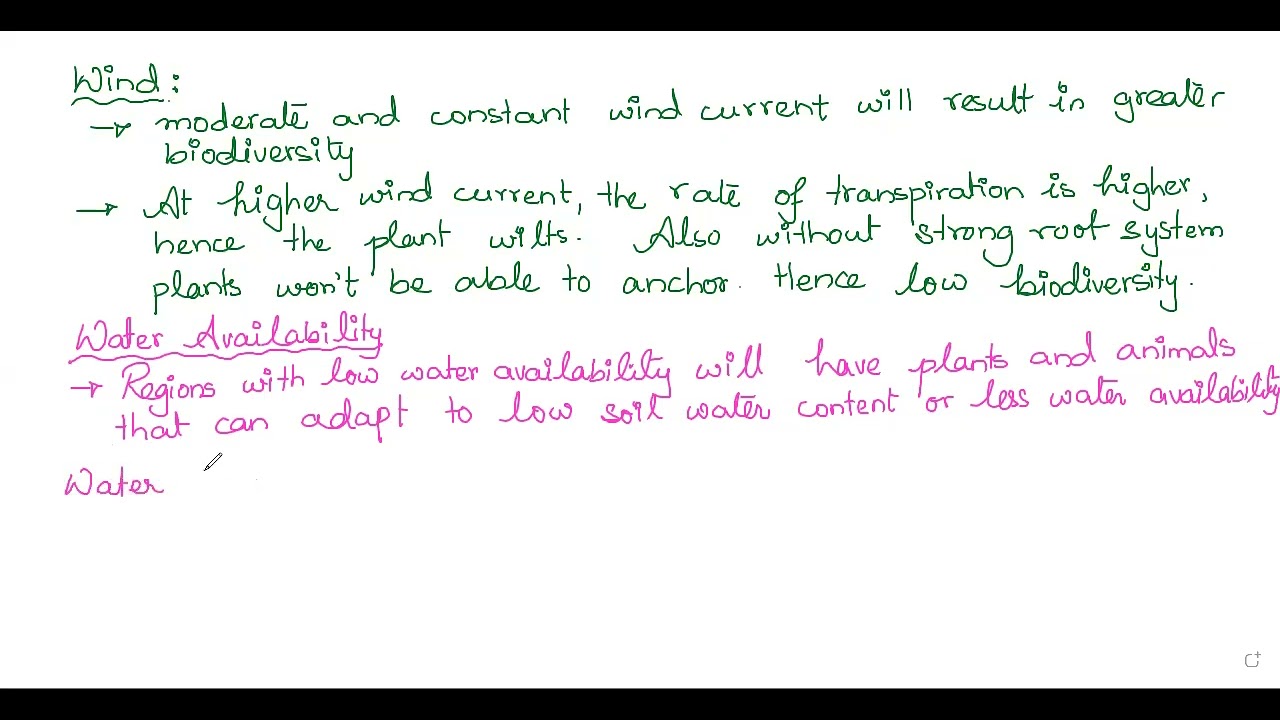 Wind:
→ moderate and constant wind current will result in greater
biodiversity
→ At higher wind current, the rate of transpiration is higher,
hence the plant wilts. Also without strong root system
plants won't be able to anchor. Hence low biodiversity.
Water Availability
→ Regions with low water availability will have plants and animals
that can adapt to low soil water content or less water availability
Water